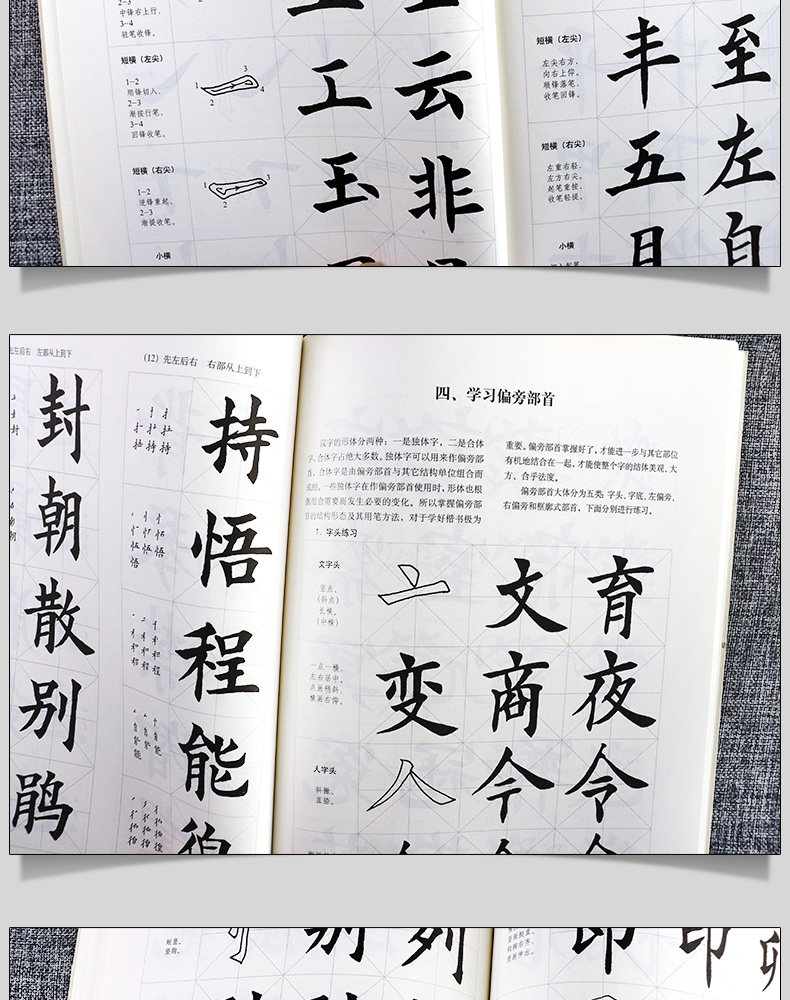 2-3
中锋右上行，
3-4
驻笔收锋。
短横（左尖）
1-2
顺锋切入，
2-3
渐按行笔，
3-4
回锋收笔。
1 2 3 4
工 云
短横（右尖）
1-2
逆锋重起，
2-3
渐提收笔。
1 2 3
玉 非
小横
短横（左尖）
左尖右方，
向右上仰。
顺锋落笔，
收笔回锋。
丰 至
短横（右尖）
左重右轻，
左方右尖。
起笔重按，
收笔轻提。
五 左
先左后右 左部从上到下
封
朝
散
别
鹃
(12) 先左后右 右部从上到下
持
悟
程
能
四、学习偏旁部首
汉字的形体分两种：一是独体字，二是合体
字。合体字占绝大多数。独体字可以用来作偏旁部
首。合体字是由偏旁部首与其它结构单位组合而
成的。一些独体字在作偏旁部首使用时，形体也根
据组合需要而发生必要的变化。所以掌握偏旁部
首的结构形态及其用笔方法，对于学好楷书极为
重要。偏旁部首掌握好了，才能进一步与其它部位
有机地结合在一起，才能使整个字的结体美观、大
方、合乎法度。
偏旁部首大体分为五类：字头、字底、左偏旁、
右偏旁和框廓式部首，下面分别进行练习。
1. 字头练习
文字头
竖点、
(斜点)
长横、
(中横)
亠 文 育
一点一横，
左右居中。
点画稍斜，
横画右仰。
变 商 夜
人字头
斜撇、
直捺。
人 今 令
竖钩。
别 列
即 印